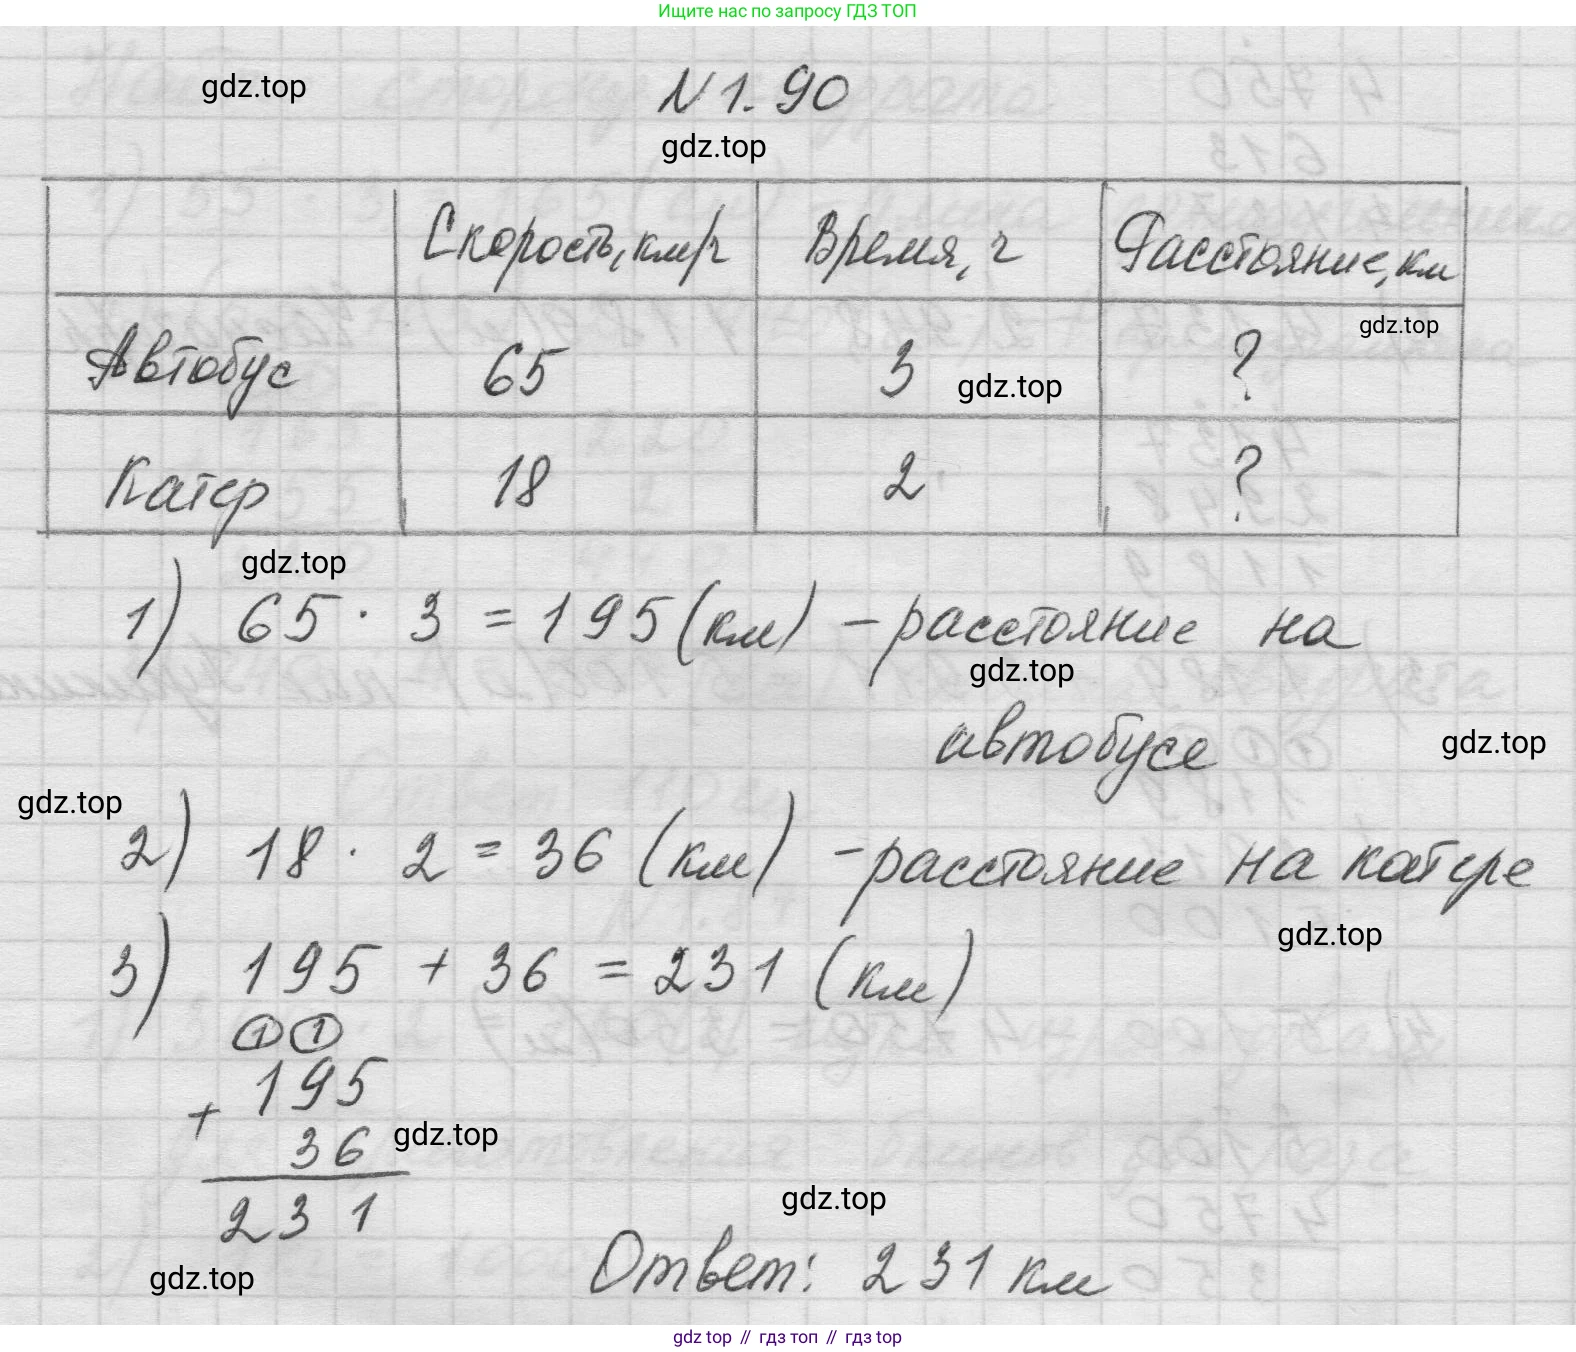 Ищите нас по запросу ГДЗ ТОП
gdz.top
N 1. 90
gdz.top
Скорость, км/ч Время, ч Расстояние, км
gdz.top
Автобус 65 3 ?
gdz.top
Катер 18 2 ?
gdz.top
1) 65 · 3 = 195 (км) – расстояние на
gdz.top
автобусе
gdz.top
gdz.top
2) 18 · 2 = 36 (км) – расстояние на катере
gdz.top
3) 195 + 36 = 231 (км)
1 1
195
+
36
gdz.top
231
gdz.top
Ответ: 231 км
gdz.top
gdz top // гдз топ // гдз top